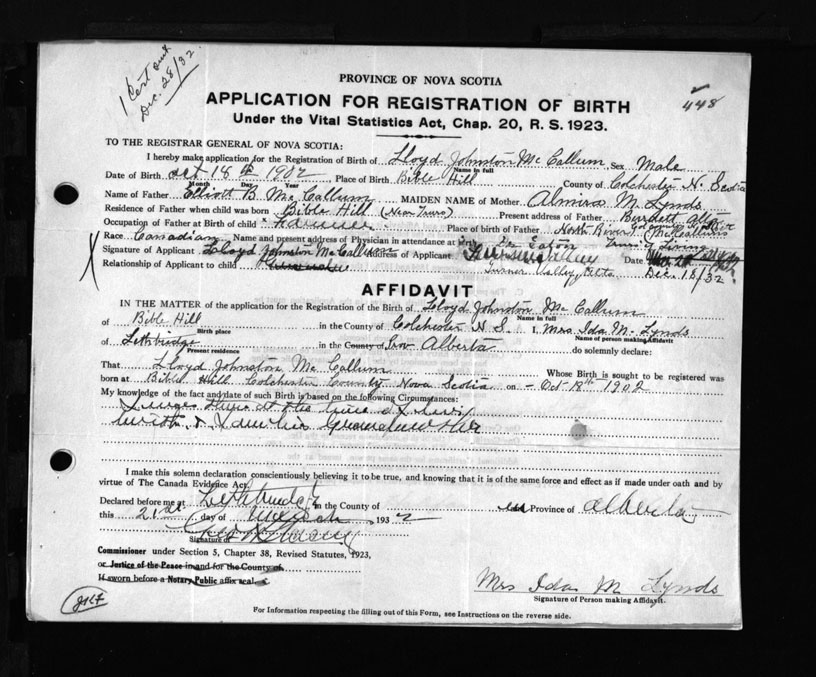 1 Cert sent
Dec. 28/32
PROVINCE OF NOVA SCOTIA
448
APPLICATION FOR REGISTRATION OF BIRTH
Under the Vital Statistics Act, Chap. 20, R. S. 1923.
TO THE REGISTRAR GENERAL OF NOVA SCOTIA:
I hereby make application for the Registration of Birth of Lloyd Johnston McCallum Sex Male
Name in full
Date of Birth Oct 18th 1902 Place of Birth Bible Hill County of Colchester N. Scotia
Month Day Year
Name of Father Elliott B. McCallum MAIDEN NAME of Mother Almira M. Lynds
Residence of Father when child was born Bible Hill (Near Truro) Present address of Father Burdett Alta
Occupation of Father at Birth of child Farmer Place of birth of Father North River
Race Canadian Name and present address of Physician in attendance at birth Dr Eaton Truro
Signature of Applicant Lloyd Johnston McCallum Address of Applicant Turner Valley Date
Relationship of Applicant to child Turner Valley, Alta Dec. 18/32
AFFIDAVIT
IN THE MATTER of the application for the Registration of the Birth of Lloyd Johnston McCallum
Name in full
of Bible Hill in the County of Colchester N.S. I, Mrs Ida M. Lynds
Birth place Name of person making Affidavit
of Lethbridge in the County of Prov Alberta do solemnly declare:
Present residence
That Lloyd Johnston McCallum Whose Birth is sought to be registered was
born at Bible Hill Colchester County Nova Scotia on Oct 18th 1902
My knowledge of the fact and date of such Birth is based on the following Circumstances:
I was there at the time
I make this solemn declaration conscientiously believing it to be true, and knowing that it is of the same force and effect as if made under oath and by
virtue of The Canada Evidence Act.
Declared before me at Lethbridge in the County of in Province of Alberta
this 21st day of March 1932
Signature of
Commissioner under Section 5, Chapter 38, Revised Statutes, 1923,
or Justice of the Peace in and for the County of
If sworn before a Notary Public affix seal.
Mrs Ida M Lynds
Signature of Person making Affidavit.
For Information respecting the filling out of this Form, see Instructions on the reverse side.